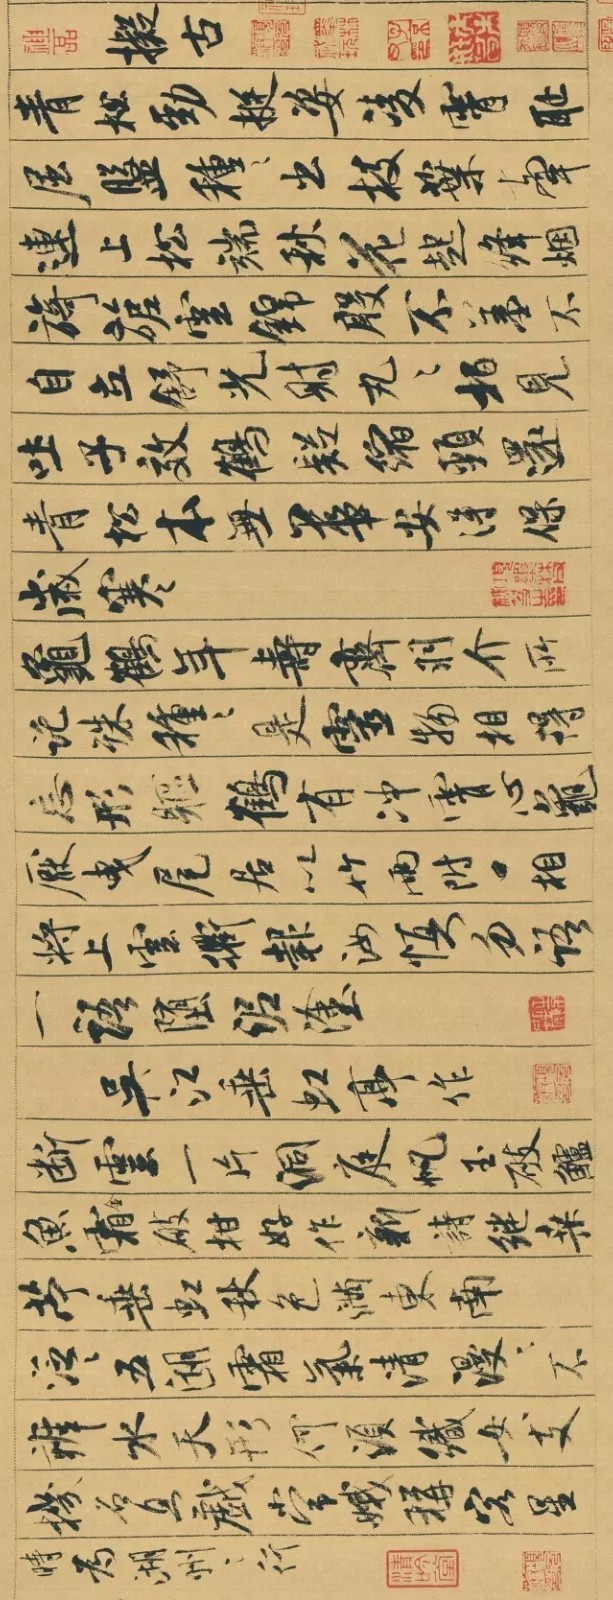 擬古
青松勁挺姿凌霄恥
屈盤種々出枝葉牽
連上松端秋花起絳烟
旖旎雲錦殷不羞不
自立舒光射丸々柏見
吐子效鶴疑縮頸還
青松本無華安得保
歲寒
龜鶴年壽齊羽介所
託殊種々是靈物相得
忘形軀鶴有冲霄心龜
厭曳尾居以竹兩附口相
將上雲衢報汝慎勿語
一語墮泥塗
吳江垂虹亭作
斷雲一片洞庭帆玉破鱸
魚霜破柑好作新詩繼桑
苧垂虹秋色滿東南
泛々五湖霜氣清漫々不
辨水天形何須織女支
機石且戲常娥稱客星
時為湖州之行